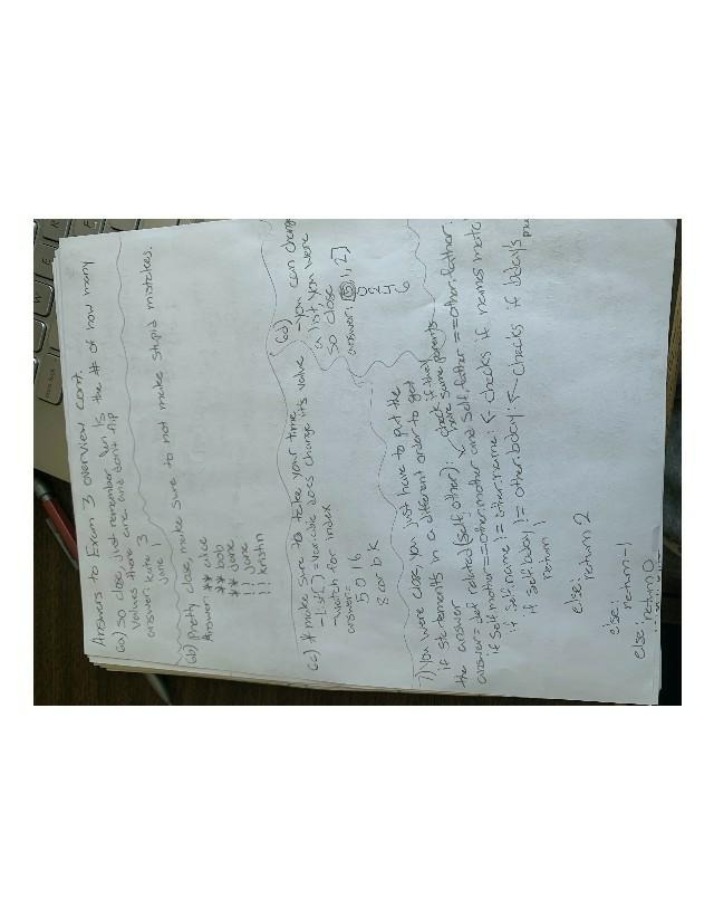 Answers to Exam 3 overview cont.
6a) So close, just remember len is the # of how many
values there are and dont flip
answer: kate 3
jane 1
6b) Pretty close, make sure to not make stupid mistakes.
Answer: ** alice
** bob
** jane
!! jane
!! kristin
6c) # make sure to take your time
- List[] = variable does change its value
- watch for index
answer=
5 0 1 6
8 car b k
6d) - you can change
a list you were
so close
answer: 1, 2]
7) You were close, you just have to put the
if statements in a different order to get
the answer
check if they
have same parents
answer= def related(self, other):
if self.mother==other.mother and self.father ==other.father.
if self.name != other.name: ← checks if names matc
if self.bday != other.bday: ← checks if bday's
return 1
else:
return 2
else:
return -1
else:
return 0